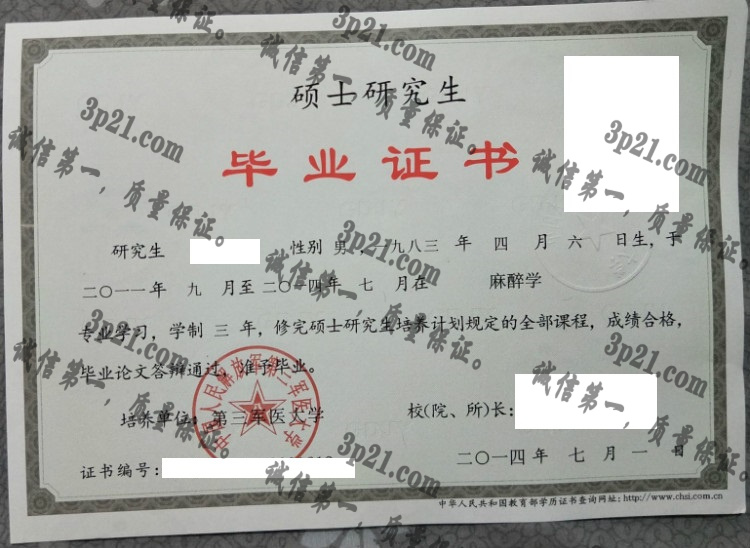 硕士研究生
毕业证书
研究生 性别 男，一九八三 年 四 月 六 日生，于
二〇一一年 九 月至二〇一四年 七 月在 麻醉学
专业学习，学制 三 年，修完硕士研究生培养计划规定的全部课程，成绩合格，
毕业论文答辩通过，准予毕业。
培养单位：第三军医大学 校(院、所)长：
证书编号：
二〇一四年 七 月 一 日
中华人民共和国教育部学历证书查询网址：http://www.chsi.com.cn
中国人民解放军第三军医大学
3p21.com
诚信第一，质量保证。
3p21.com
诚信第一，质量保证。
3p21.com
诚信第一，质量保证。
3p21.com
诚信第一，质量保证。
3p21.com
诚信第一，质量保证。
3p21.com
诚信第一，质量保证。
3p21.com
诚信第一，质量保证。